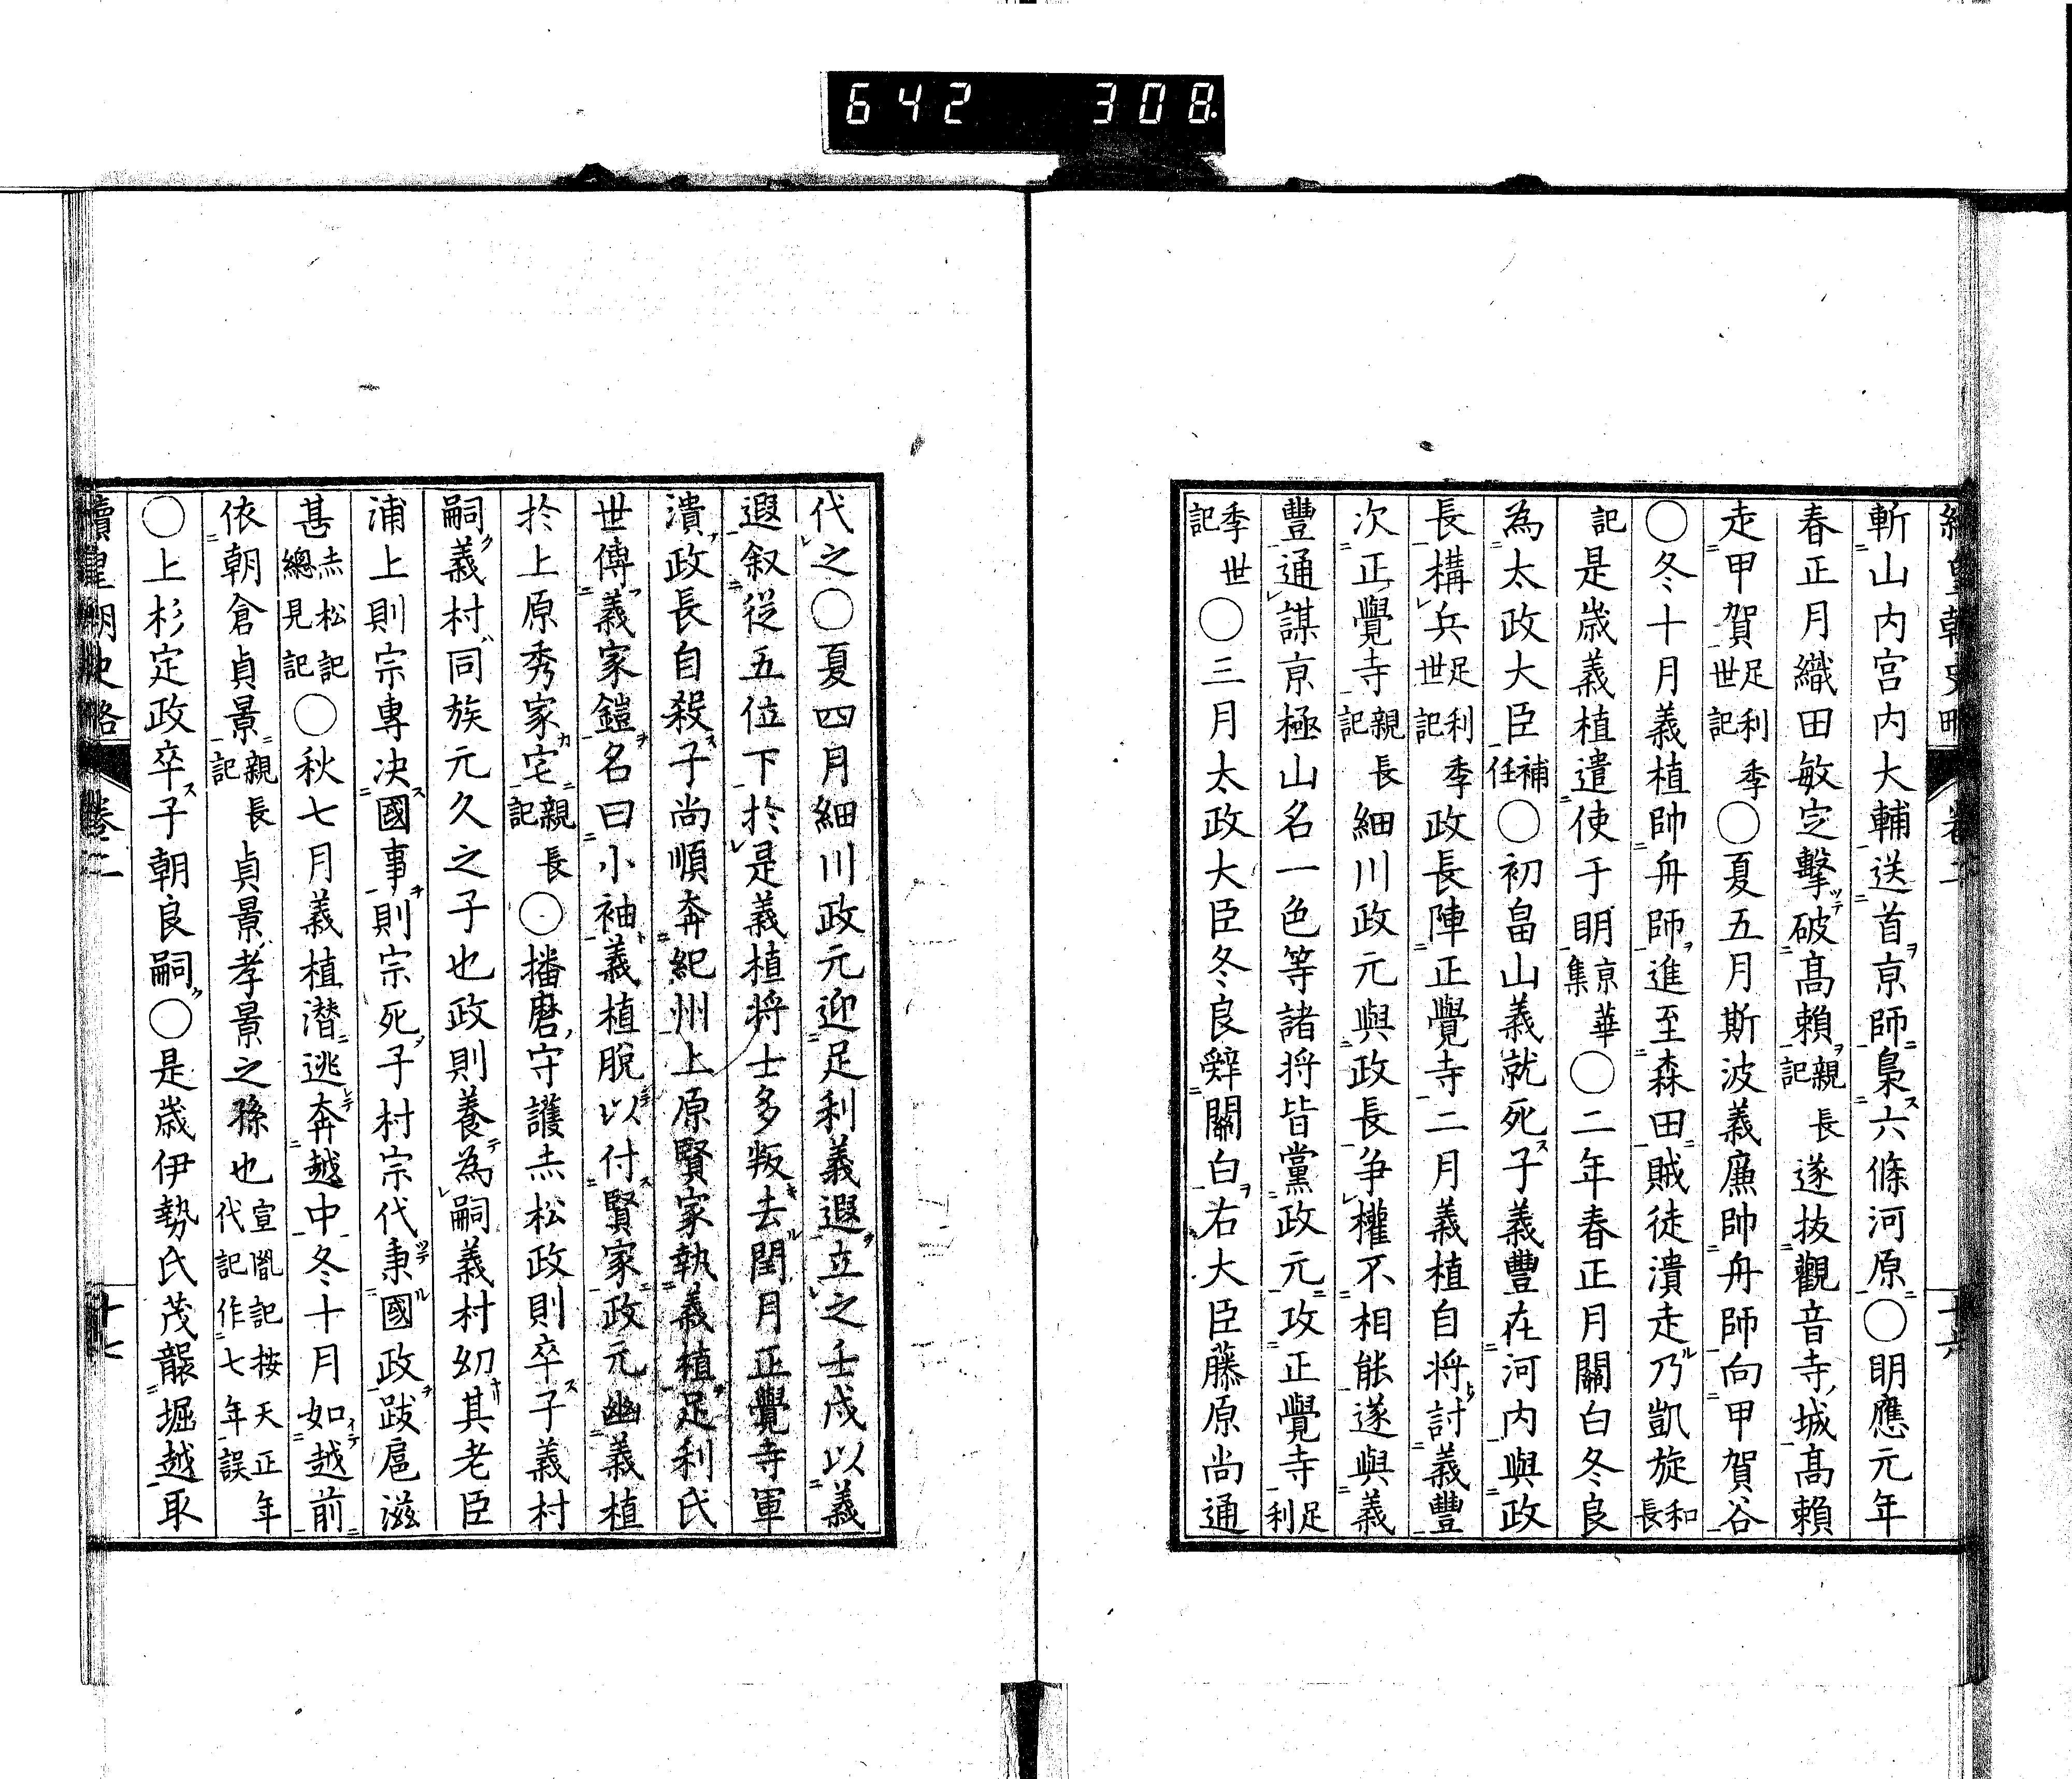 642 308
續皇朝史略 卷二 十六
斬山内宮内大輔送首京師梟六條河原○明應元年
春正月織田敏定擊破高賴親長記遂拔觀音寺城高賴
走甲賀足利季世記○夏五月斯波義廉帥舟師向甲賀谷
○冬十月義植帥舟師進至森田賊徒潰走乃凱旋和長
記是歲義植遣使于明京華集○二年春正月關白冬良
為太政大臣補任○初畠山義就死子義豐在河内與政
長構兵足利季世記政長陣正覺寺二月義植自将討義豐
次正覺寺親長記細川政元與政長争權不相能遂與義
豐通謀京極山名一色等諸将皆黨政元攻正覺寺足利
季世記○三月太政大臣冬良辤關白右大臣藤原尚通
代之○夏四月細川政元迎足利義遐立之壬戌以義
遐叙從五位下於是義植将士多叛去閏月正覺寺軍
潰政長自殺子尚順奔紀州上原賢家執義植足利氏
世傳義家鎧名曰小袖義植脫以付賢家政元幽義植
於上原秀家宅親長記○播磨守護赤松政則卒子義村
嗣義村同族元久之子也政則養為嗣義村幼其老臣
浦上則宗專决國事則宗死子村宗代秉國政跋扈滋
甚赤松記總見記○秋七月義植潜逃奔越中冬十月如越前
依朝倉貞景親長記貞景孝景之孫也宣胤記按天正年代記作七年誤
○上杉定政卒子朝良嗣○是歲伊勢氏茂襲堀越取
續皇朝史略 卷二 十七